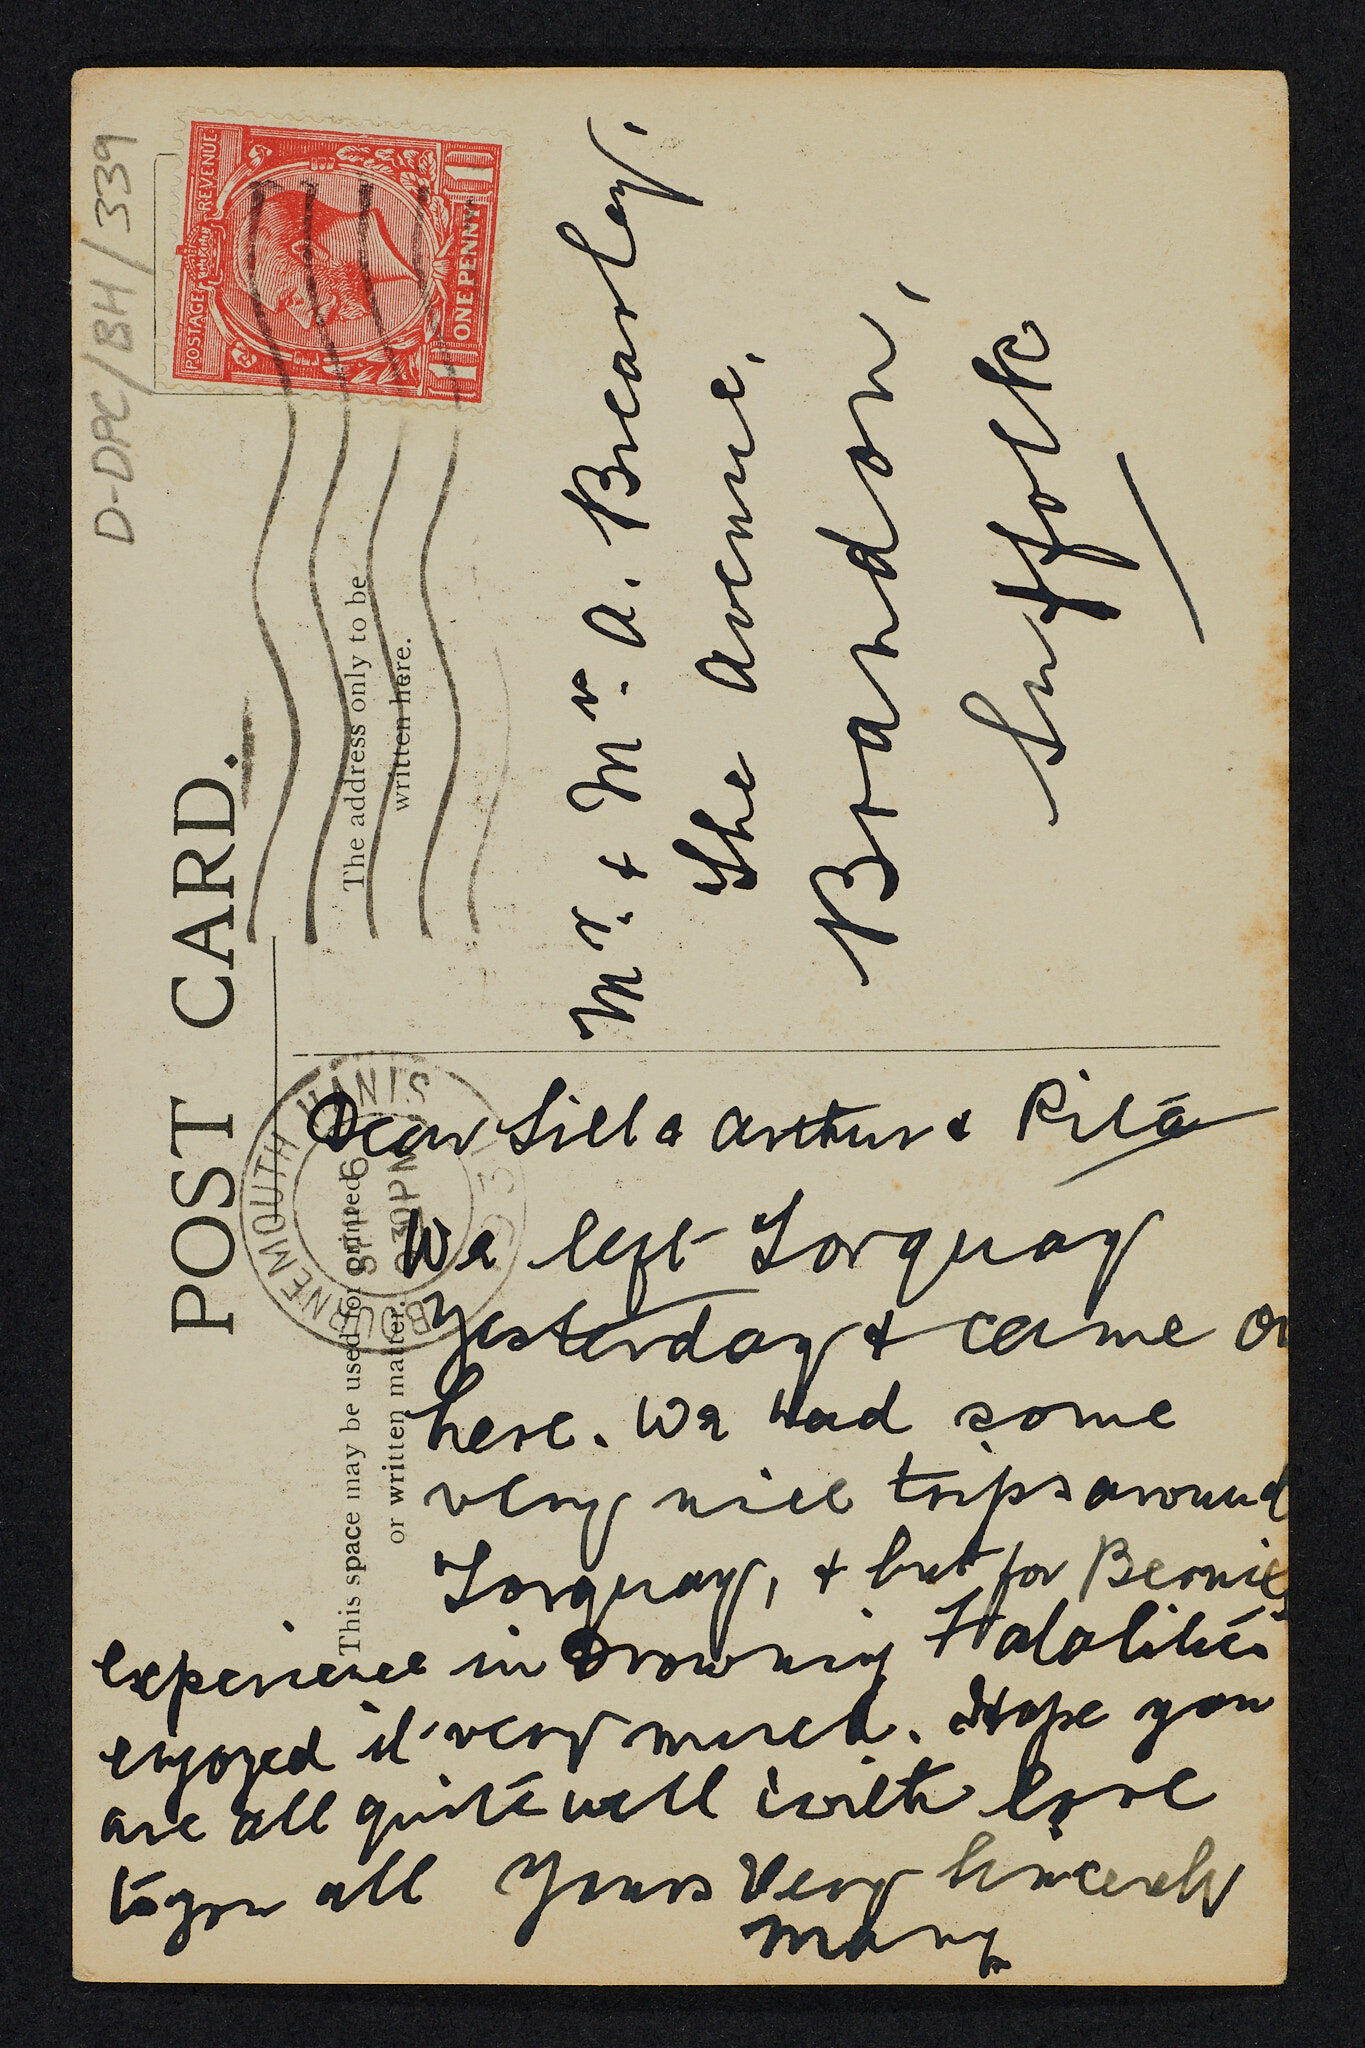 D-DPC/BH/339
POSTAGE REVENUE
1 ONE PENNY 1
POST CARD.
This space may be used for printed
or written matter.
The address only to be
written here.
BOURNEMOUTH HANTS
6
30 PM
Mr. + Mrs. A. Brearley,
The Avenue,
Brandon,
Suffolk
Dear Lill & Arthur & Rita
We left Torquay
yesterday & came on
here. We had some
very nice trips around
Torquay, & but for Bernies
experience in Drowning Fatalities
enjoyed it very much. Hope you
are all quite well with love
to you all Yours Very Sincerely
Mary